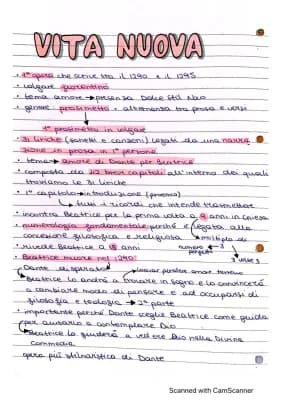 VITA NUOVA
• 1° opera che scrive tra il 1290 e il 1295
• volgare fiorentino
• tema amore → presenza Dolce Stil Nao
• genere prosimetro • alternanza tra prosa e versi
1° prosimetro in volgare
• 31 liriche (sonetti e canzoni) legati da una narra
zione in prosa in 1° persona
• tema → amore di Dante per Beatrice
• composta da 42 brevi capitoli all'interno dei quali
troviamo le 31 liriche
• 1° capitolo → introduzione (proemio)
tutti i ricordi che intende trasmettere
• incontra Beatrice per la prima volta a 9 anni in chiesa
• numerologia fondamentale perché è legata alla
concezione filosofica e religiosa
multiplo di 3
numero perfetto
3 volte 3
• rivede Beatrice a 18 anni
• Beatrice muore nel 1290
Dante si dispera
lasciar perdere amor terreno
Beatrice lo andrà a trovare in sogno e lo convincerà
a cambiare modo di pensare e ad occuparsi di
filosofia e teologia → 2° parte
• importante perché Dante sceglie Beatrice come guida
per aiutarlo a contemplare Dio
Beatrice lo guiderà a vedere Dio nella Divina
commedia
opera più stilnovistica di Dante
Scanned with CamScanner